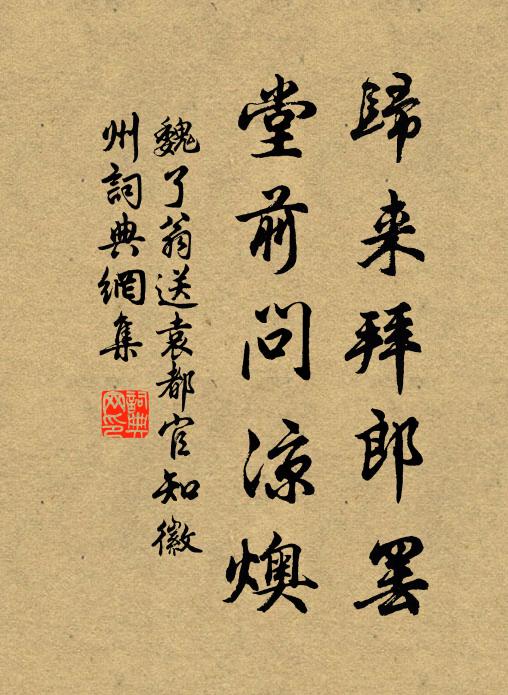 歸来拜郎罷
堂前問涼燠
魏了翁送袁都官知徽
州詞典網集
詞典网印